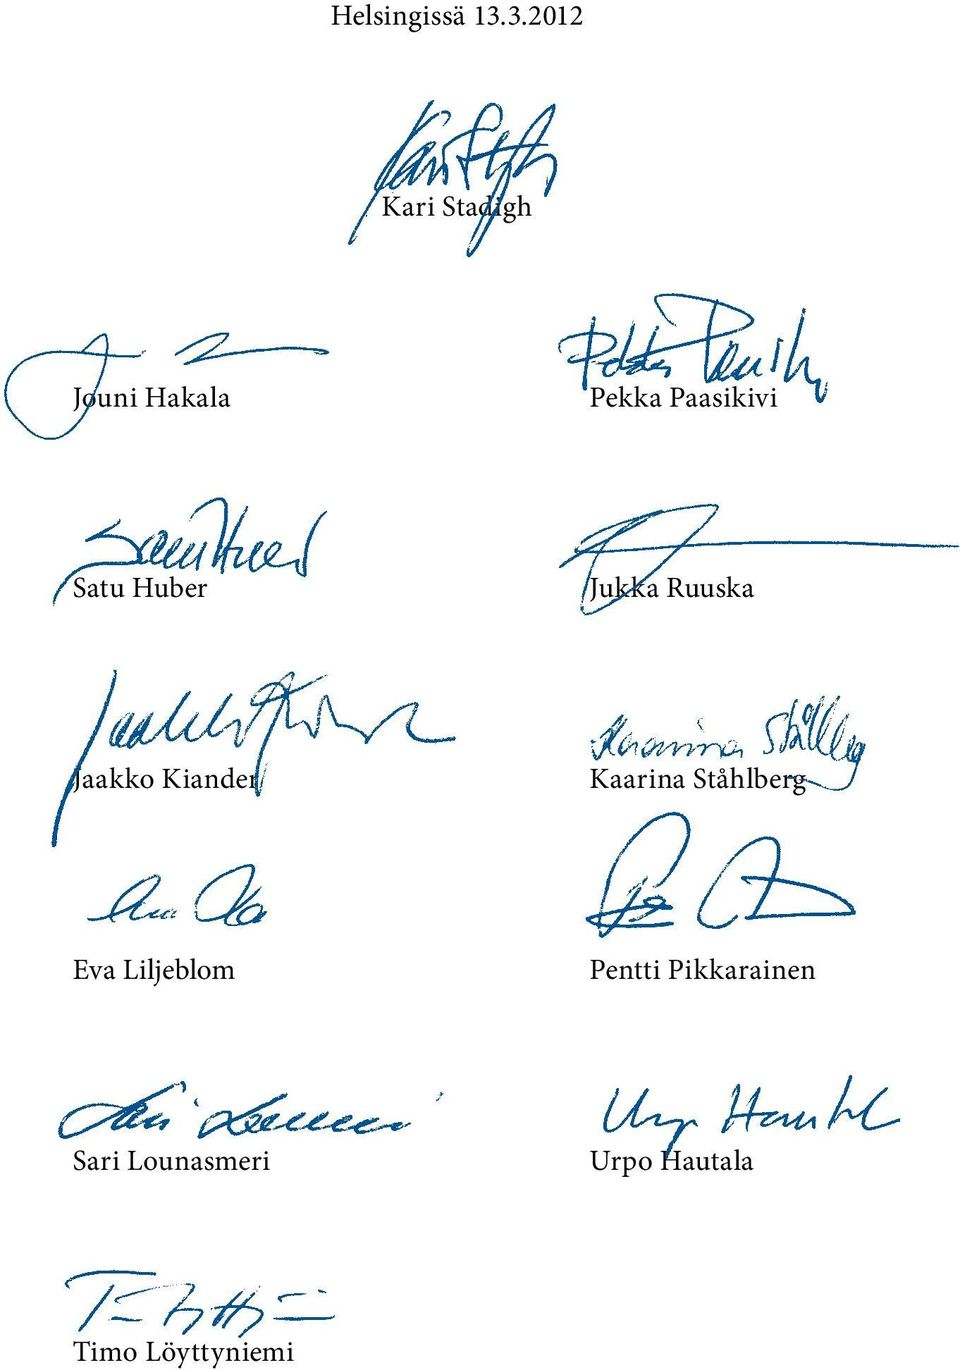 Helsingissä 13.3.2012
Kari Stadigh
Jouni Hakala
Pekka Paasikivi
Satu Huber
Jukka Ruuska
Jaakko Kiander
Kaarina Ståhlberg
Eva Liljeblom
Pentti Pikkarainen
Sari Lounasmeri
Urpo Hautala
Timo Löyttyniemi